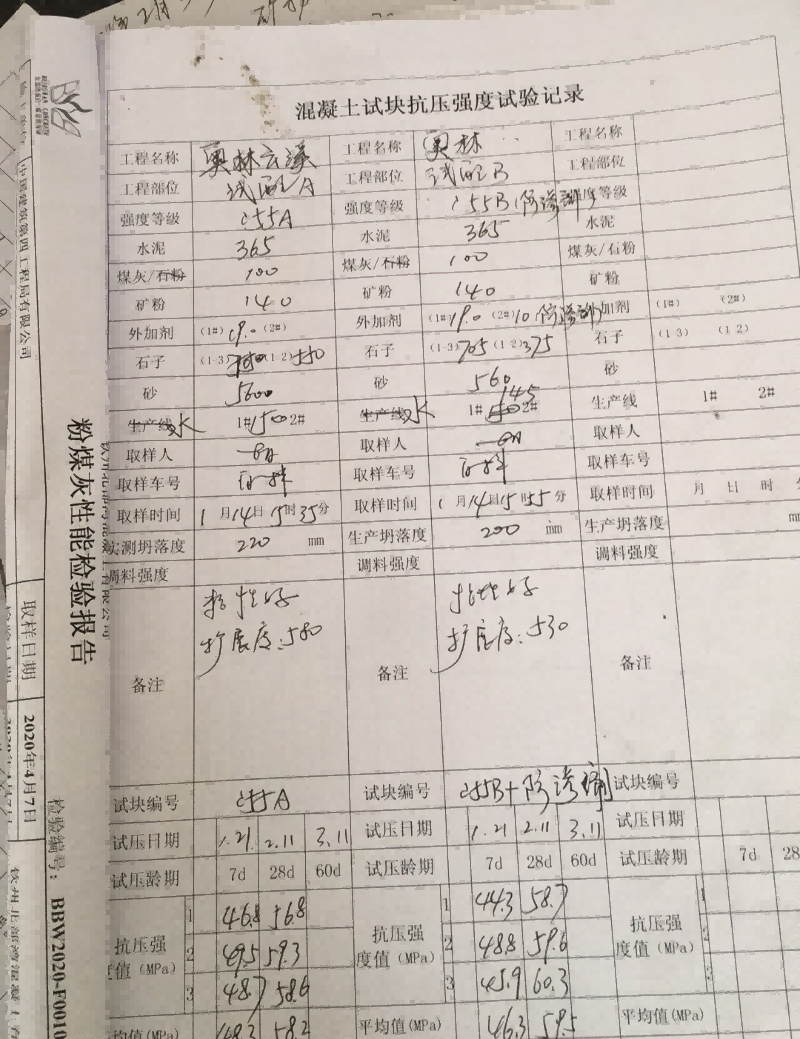 混凝土试块抗压强度试验记录
工程名称 奥林云溪 工程名称 奥林 工程名称
工程部位 试配A 工程部位 试配B 工程部位
强度等级 C55A 强度等级 C55B(防渗 强度等级
水泥 365 水泥 365 水泥
煤灰/石粉 100 煤灰/石粉 100 煤灰/石粉
矿粉 140 矿粉 140 矿粉
外加剂 (1#) 19.0 (2#) 外加剂 (1#) 19.0 (2#) 10 加剂 (1#) (2#)
石子 (1-3) (1-2) 350 石子 (1-3) 705 (1-2) 375 石子 (1-3) (1-2)
砂 砂 560 砂
生产线 水 1# 150 2# 生产线 水 1# 145 2# 生产线 1# 2#
取样人 取样人 取样人
取样车号 取样车号 取样车号
取样时间 1月14日15时35分 取样时间 1月14日15时55分 取样时间 月 日 时
实测坍落度 220 mm 生产坍落度 200 mm 生产坍落度
调料强度 调料强度 调料强度
备注 粘性好 备注 粘性好 备注
扩展度:580 扩展度:530
试块编号 C55A 试块编号 C55B+防渗 试块编号
试压日期 1.21 2.11 3.11 试压日期 1.21 2.11 3.11 试压日期
试压龄期 7d 28d 60d 试压龄期 7d 28d 60d 试压龄期 7d 28
抗压强度值(MPa) 抗压强度值(MPa) 抗压强度值(MPa)
1 46.8 56.8 1 44.3 58.7 1
2 49.5 59.3 2 48.8 59.6 2
3 48.7 58.6 3 45.9 60.3
平均值(MPa) 48.3 58.2 平均值(MPa) 46.3 59.5 平均值(MPa)
粉煤灰性能检验报告
检验编号: BBW2020-F0010
取样日期 2020年4月7日
中国建筑第四工程局有限公司